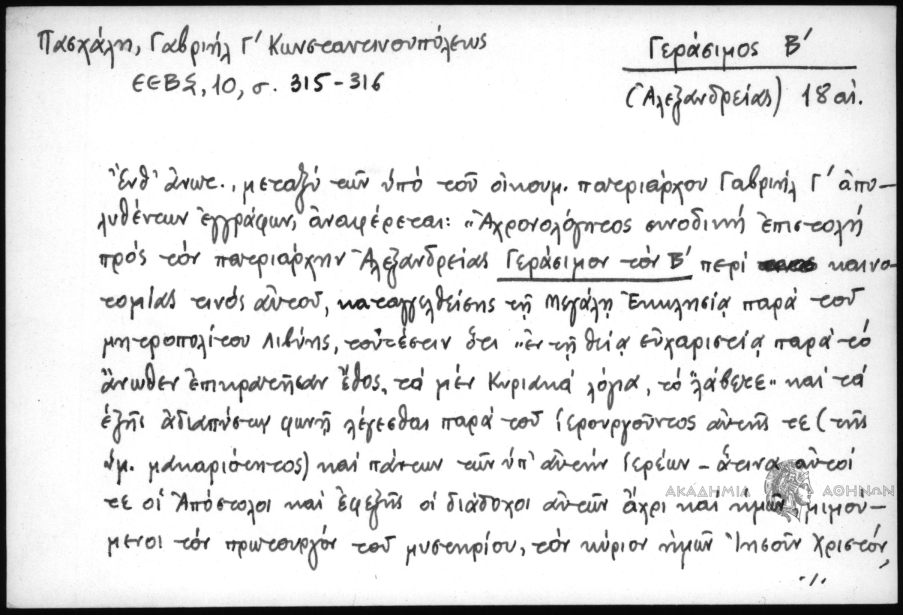 Πασχάλη, Γαβριήλ Γ' Κωνσταντινουπόλεως
ΕΕΒΣ, 10, σ. 315-316
Γεράσιμος Β'
(Ἀλεξανδρείας) 18 αἰ.
Ἔνθ' ἀνωτ., μεταξύ τῶν ὑπό τοῦ οἰκουμ. πατριάρχου Γαβριήλ Γ' ἀπο-
λυθέντων ἐγγράφων, ἀναφέρεται: "Ἀχρονολόγητος συνοδική ἐπιστολή
πρός τόν πατριάρχην Ἀλεξανδρείας Γεράσιμον τόν Β' περί καινο-
τομίας τινός αὐτοῦ, καταγγελθείσης τῇ Μεγάλῃ Ἐκκλησίᾳ παρά τοῦ
μητροπολίτου Λιβύης, τοὐτέστιν ὅτι "ἐν τῇ θείᾳ εὐχαριστίᾳ παρά τό
ἄνωθεν ἐπικρατῆσαν ἔθος, τά μέν Κυριακά λόγια, τό "λάβετε" καί τά
ἑξῆς ἀδιαπύστῳ φωνῇ λέγεσθαι παρά τοῦ ἱερουργοῦντος αὐτῆς τε (τῆς
ὑμ. μακαριότητος) καί πάντων τῶν ὑπ' αὐτήν ἱερέων - ἅτινα αὐτοί
τε οἱ Ἀπόστολοι καί ἐφεξῆς οἱ διάδοχοι αὐτῶν ἄχρι καί ἡμῶν μιμού-
μενοι τόν πρωτουργόν τοῦ μυστηρίου, τόν κύριον ἡμῶν Ἰησοῦν Χριστόν,
./.
ΑΚΑΔΗΜΙΑ ΑΘΗΝΩΝ